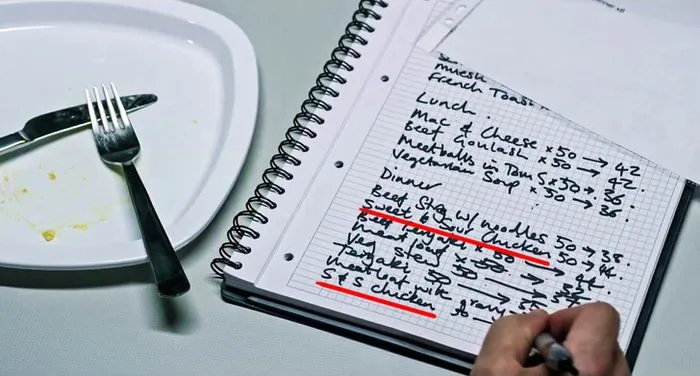 muesk
French Toast
Lunch
Mac & Cheese x50 → 42
Beef Goulash x50 → 42
Meatballs in Tom S x50 → 36
Vegetarian Soup x30 → 36
Dinner
Beef w/ noodles 50 → 38
Sweet & Sour Chicken 50 →
Beef Teriyaki x50 →
meat loaf x50 →
Veg stew 50
Teriyaki 50
meatloaf
S & S chicken